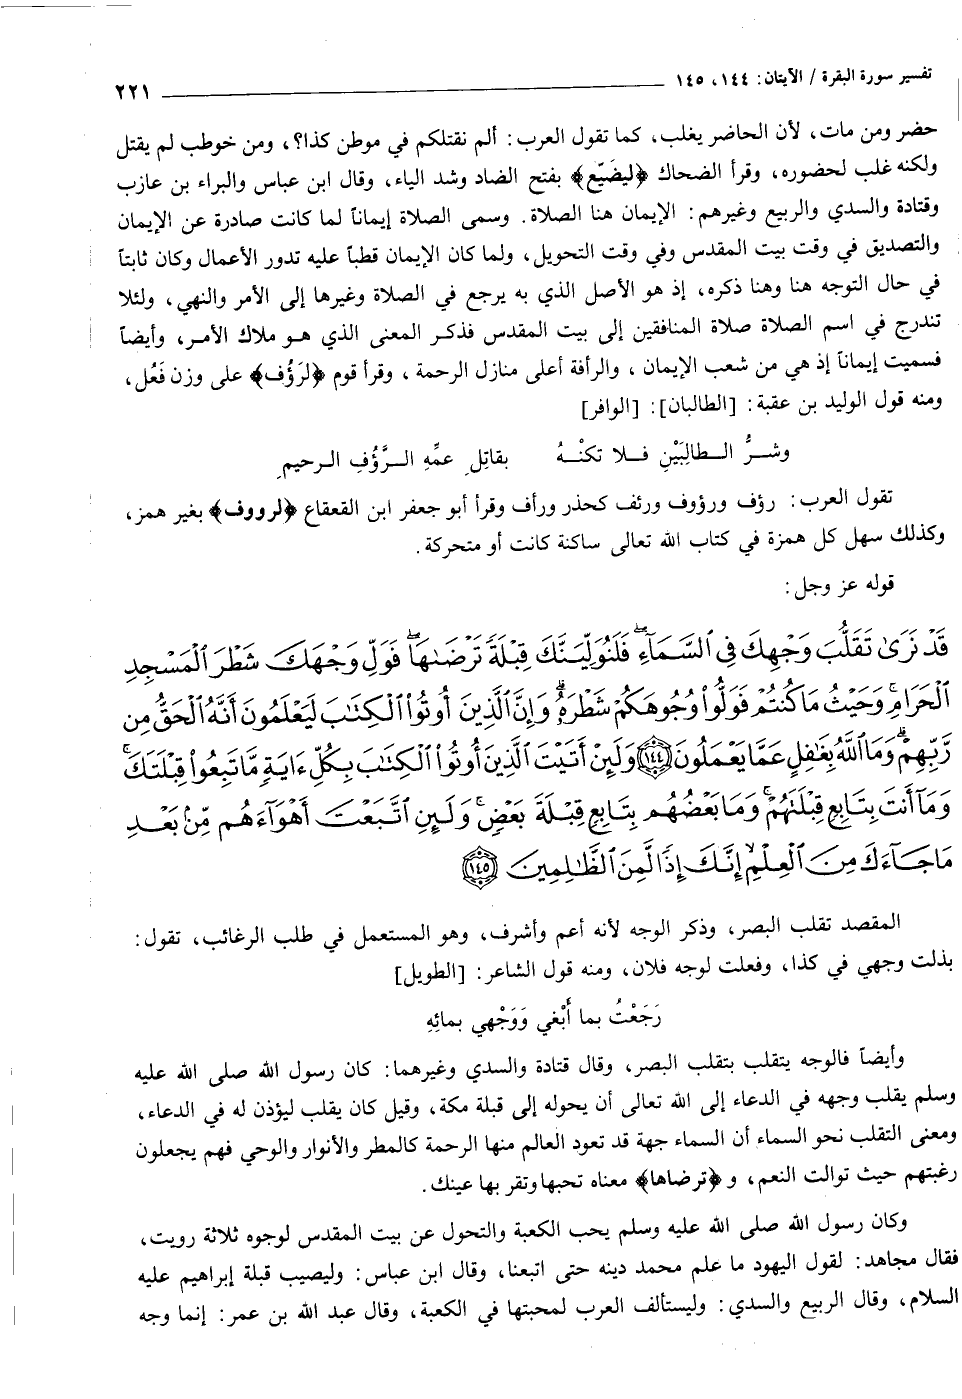 تفسير سورة البقرة / الآيتان: ١٤٤، ١٤٥ ٢٢١
حضر ومن مات، لأن الحاضر يغلب، كما تقول العرب: ألم نقتلكم في موطن كذا؟، ومن خوطب لم يقتل
ولكنه غلب لحضوره، وقرأ الضحاك ﴿ليضَيّع﴾ بفتح الضاد وشد الياء، وقال ابن عباس والبراء بن عازب
وقتادة والسدي والربيع وغيرهم: الإيمان هنا الصلاة. وسمى الصلاة إيماناً لما كانت صادرة عن الإيمان
والتصديق في وقت بيت المقدس وفي وقت التحويل، ولما كان الإيمان قطباً عليه تدور الأعمال وكان ثابتاً
في حال التوجه هنا وهنا ذكره، إذ هو الأصل الذي به يرجع في الصلاة وغيرها إلى الأمر والنهي، ولئلا
تندرج في اسم الصلاة صلاة المنافقين إلى بيت المقدس فذكر المعنى الذي هو ملاك الأمر، وأيضاً
فسميت إيماناً إذ هي من شعب الإيمان، والرأفة أعلى منازل الرحمة، وقرأ قوم ﴿لَرَؤُف﴾ على وزن فَعُل،
ومنه قول الوليد بن عقبة: [الطالبان]: [الوافر]
وشرُّ الطالِبَيْنِ فلا تكنْهُ بقاتِلِ عمِّهِ الرَّؤُفِ الرحيمِ
تقول العرب: رؤف ورؤوف ورئف كحذر ورأف وقرأ أبو جعفر ابن القعقاع ﴿لرووف﴾ بغير همز،
وكذلك سهل كل همزة في كتاب الله تعالى ساكنة كانت أو متحركة.
قوله عز وجل:
قَدْ نَرَىٰ تَقَلُّبَ وَجْهِكَ فِي ٱلسَّمَآءِ ۖ فَلَنُوَلِّيَنَّكَ قِبْلَةً تَرْضَىٰهَا ۚ فَوَلِّ وَجْهَكَ شَطْرَ ٱلْمَسْجِدِ
ٱلْحَرَامِ ۚ وَحَيْثُ مَا كُنتُمْ فَوَلُّوا۟ وُجُوهَكُمْ شَطْرَهُۥ ۗ وَإِنَّ ٱلَّذِينَ أُوتُوا۟ ٱلْكِتَٰبَ لَيَعْلَمُونَ أَنَّهُ ٱلْحَقُّ مِن
رَّبِّهِمْ ۗ وَمَا ٱللَّهُ بِغَٰفِلٍ عَمَّا يَعْمَلُونَ ١٤٤ وَلَئِنْ أَتَيْتَ ٱلَّذِينَ أُوتُوا۟ ٱلْكِتَٰبَ بِكُلِّ ءَايَةٍ مَّا تَبِعُوا۟ قِبْلَتَكَ ۚ
وَمَآ أَنتَ بِتَابِعٍ قِبْلَتَهُمْ ۚ وَمَا بَعْضُهُم بِتَابِعٍ قِبْلَةَ بَعْضٍ ۚ وَلَئِنِ ٱتَّبَعْتَ أَهْوَآءَهُم مِّنۢ بَعْدِ
مَا جَآءَكَ مِنَ ٱلْعِلْمِ ۙ إِنَّكَ إِذًا لَّمِنَ ٱلظَّٰلِمِينَ ١٤٥
المقصد تقلب البصر، وذكر الوجه لأنه أعم وأشرف، وهو المستعمل في طلب الرغائب، تقول:
بذلت وجهي في كذا، وفعلت لوجه فلان، ومنه قول الشاعر: [الطويل]
رَجَعْتُ بما أَبْغي وَوَجْهي بمائِهِ
وأيضاً فالوجه يتقلب بتقلب البصر، وقال قتادة والسدي وغيرهما: كان رسول الله صلى الله عليه
وسلم يقلب وجهه في الدعاء إلى الله تعالى أن يحوله إلى قبلة مكة، وقيل كان يقلب ليؤذن له في الدعاء،
ومعنى التقلب نحو السماء أن السماء جهة قد تعود العالم منها الرحمة كالمطر والأنوار والوحي فهم يجعلون
رغبتهم حيث توالت النعم، و ﴿ترضاها﴾ معناه تحبها وتقر بها عينك.
وكان رسول الله صلى الله عليه وسلم يحب الكعبة والتحول عن بيت المقدس لوجوه ثلاثة رويت،
فقال مجاهد: لقول اليهود ما علم محمد دينه حتى اتبعنا، وقال ابن عباس: وليصيب قبلة إبراهيم عليه
السلام، وقال الربيع والسدي: وليستألف العرب لمحبتها في الكعبة، وقال عبد الله بن عمر: إنما وجه